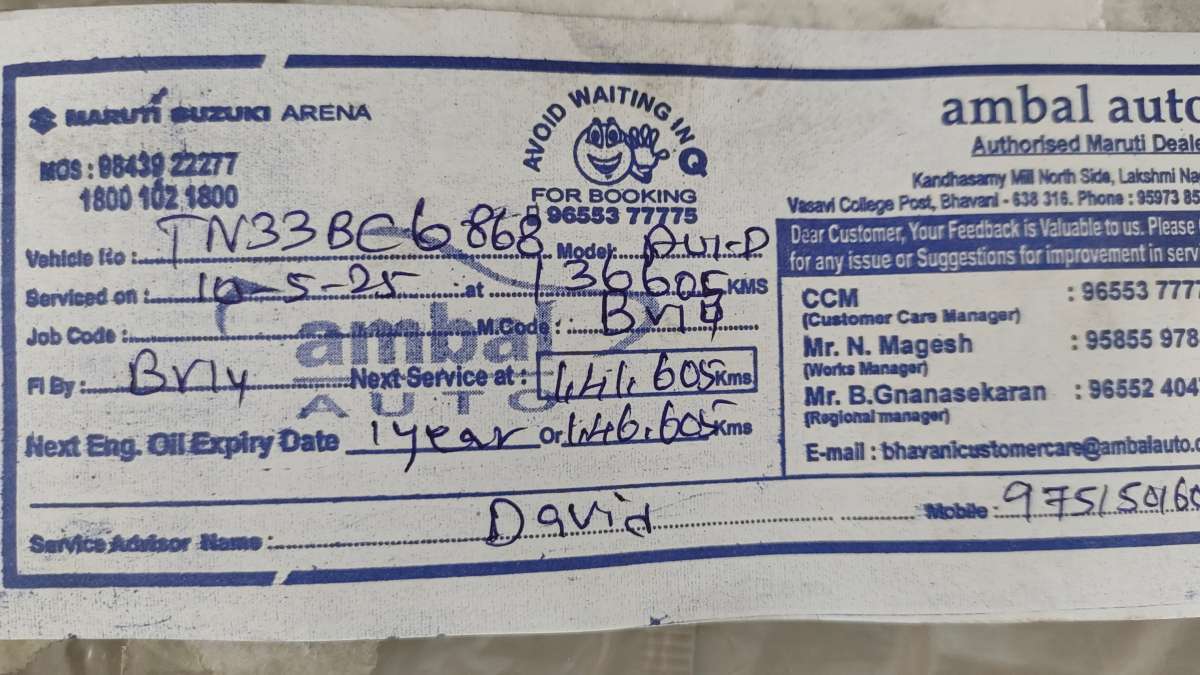 MARUTI SUZUKI ARENA
MOS : 98439 22277
1800 102 1800
AVOID WAITING IN Q
FOR BOOKING
96553 77775
ambal auto
Authorised Maruti Deale
Kandhasamy Mill North Side, Lakshmi Na
Vasavi College Post, Bhavani - 638 316. Phone : 95973 85
Dear Customer, Your Feedback is Valuable to us. Please
for any issue or Suggestions for improvement in serv
Vehicle No : TN33BC6868 Model:
Serviced on : 10-5-25 at 136605 KMS
Job Code : M.Code :
FI By : Next Service at : 1,41,605 Kms
Next Eng. Oil Expiry Date 1 year Or 1,46,605 Kms
ambal
AUTO
CCM : 96553 7777
(Customer Care Manager)
Mr. N. Magesh : 95855 978
(Works Manager)
Mr. B.Gnanasekaran : 96552 404
(Regional manager)
E-mail : bhavanicustomercare@ambalauto.c
Service Advisor Name : David Mobile : 975150160